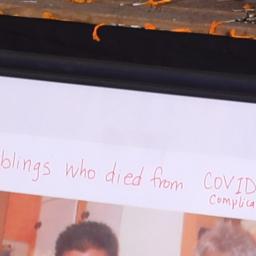 blings who died from COVID
Complica